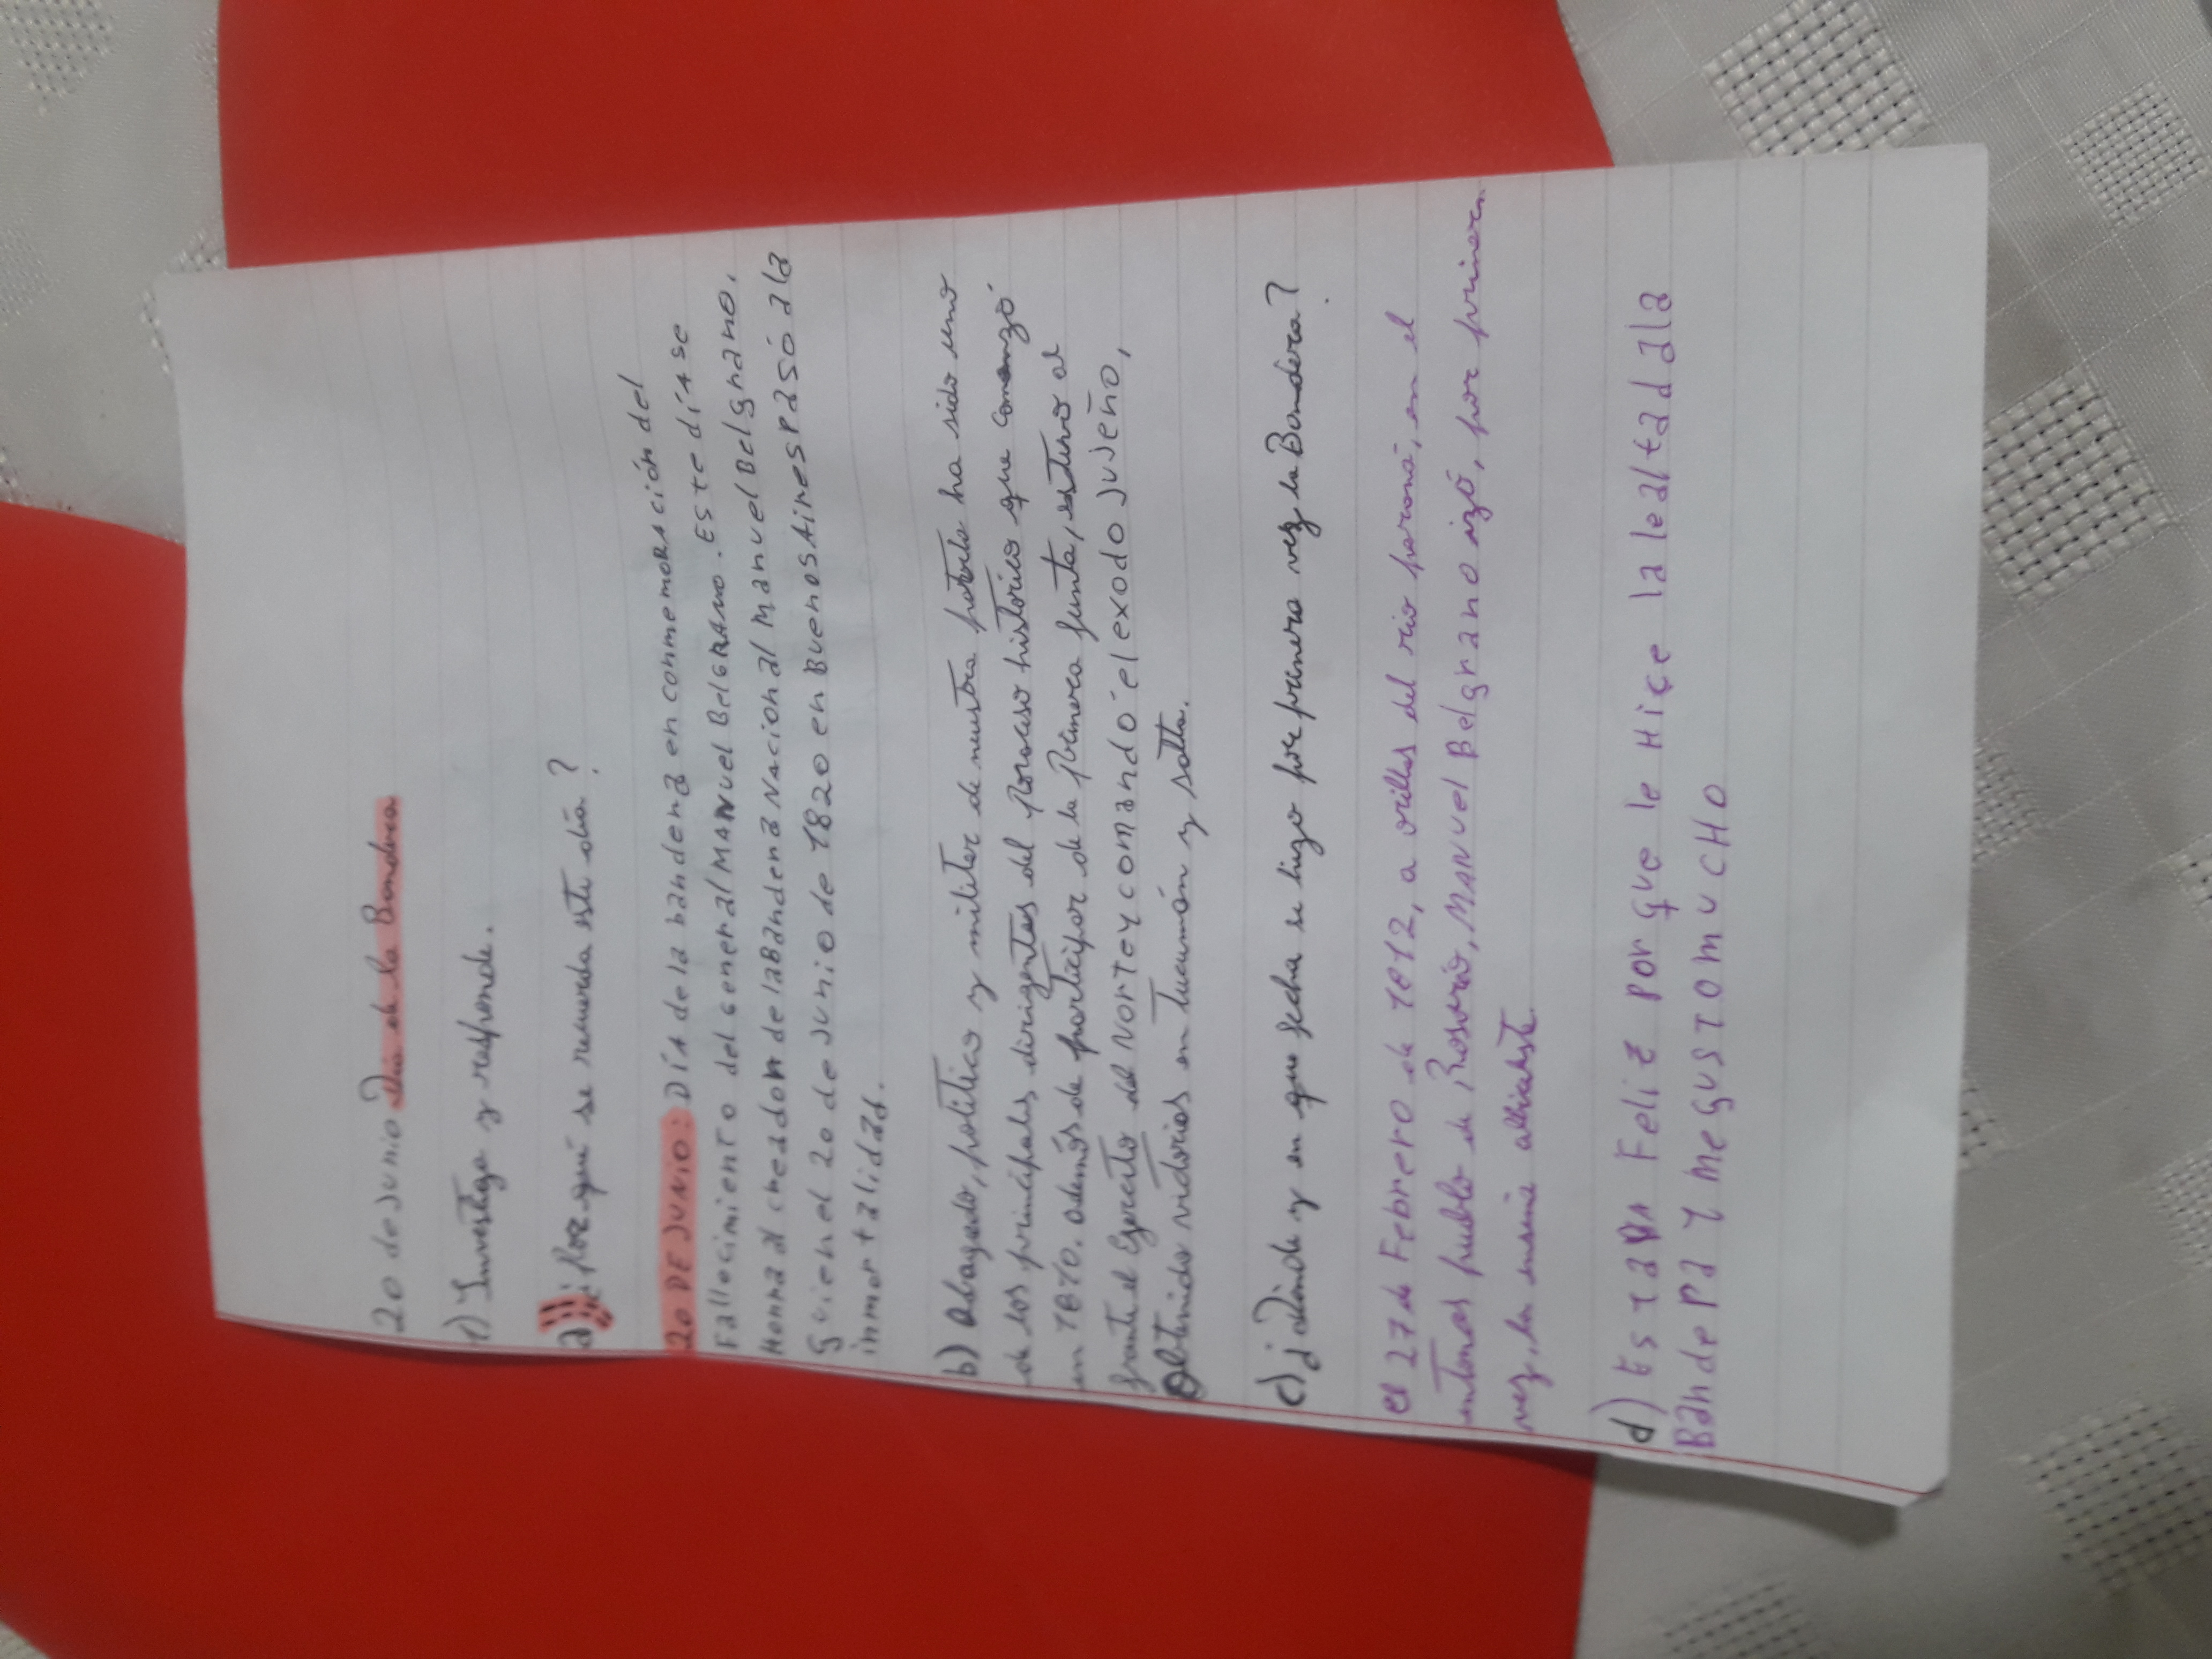 20 de Junio Día de la Bandera
1) Investiga y responde.
a) ¿Por qué se recuerda este día?
20 DE JUNIO: DÍA de la bandera en conmemoración del
Fallecimiento del General MANuel BelGRANO. ESTE día se
Honra al creador de la Bandera Nacional Manuel Belgrano.
Quien el 20 de Junio de 1820 en Buenos Aires Pasó a la
inmortalidad.
b) Abogado, político y militar de nuestra patria ha sido uno
de los principales dirigentes del proceso histórico que comenzó
en 1810. además de participar de la Primera Junta, estuvo al
frente el Ejercito del Norte y comandó el exodo Jujeño,
Obteniendo victorias en tucumán y salta.
c) ¿dónde y en que fecha se hizo por primera vez la Bandera?
el 27 de Febrero de 1812, a orillas del río paraná, en el
entonces pueblo de Rosario, MANuel Belgrano izó, por primera
vez, la enseña albiceleste.
d) Estara Feliz Por que le Hice la lealtad a la
BandePa y me gusto muCHO